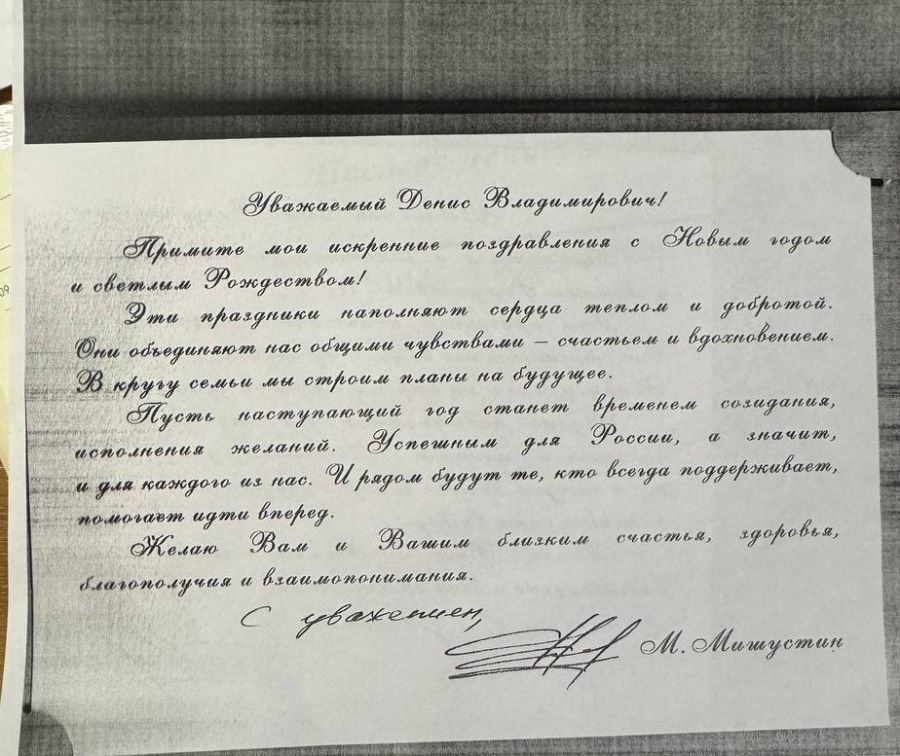 Уважаемый Денис Владимирович!
Примите мои искренние поздравления с Новым годом
и светлым Рождеством!
Эти праздники наполняют сердца теплом и добротой.
Они объединяют нас общими чувствами – счастьем и вдохновением.
В кругу семьи мы строим планы на будущее.
Пусть наступающий год станет временем созидания,
исполнения желаний. Успешным для России, а значит,
и для каждого из нас. И рядом будут те, кто всегда поддерживает,
помогает идти вперед.
Желаю Вам и Вашим близким счастья, здоровья,
благополучия и взаимопонимания.
С уважением,
М. Мишустин
09